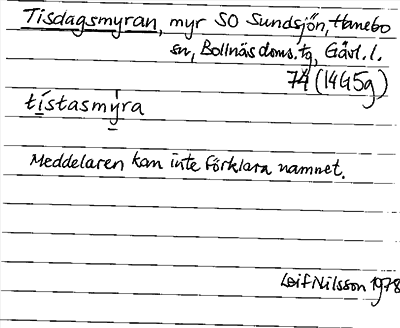 Tisdagsmyran, myr SO Sundsjön, Hanebo
sn, Bollnäs doms. tg, Gävl. l.
74 (14G5g)
tístasmýra
Meddelaren kan inte förklara namnet.
Leif Nilsson 1978